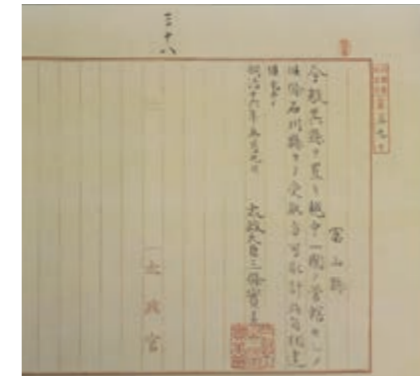 富山縣
今般其縣ヲ置キ越中一國ヲ管轄セシメ
候條石川縣ヨリ受取方可取計此旨相達
候事
明治十六年五月九日 太政大臣三條實美
太政官